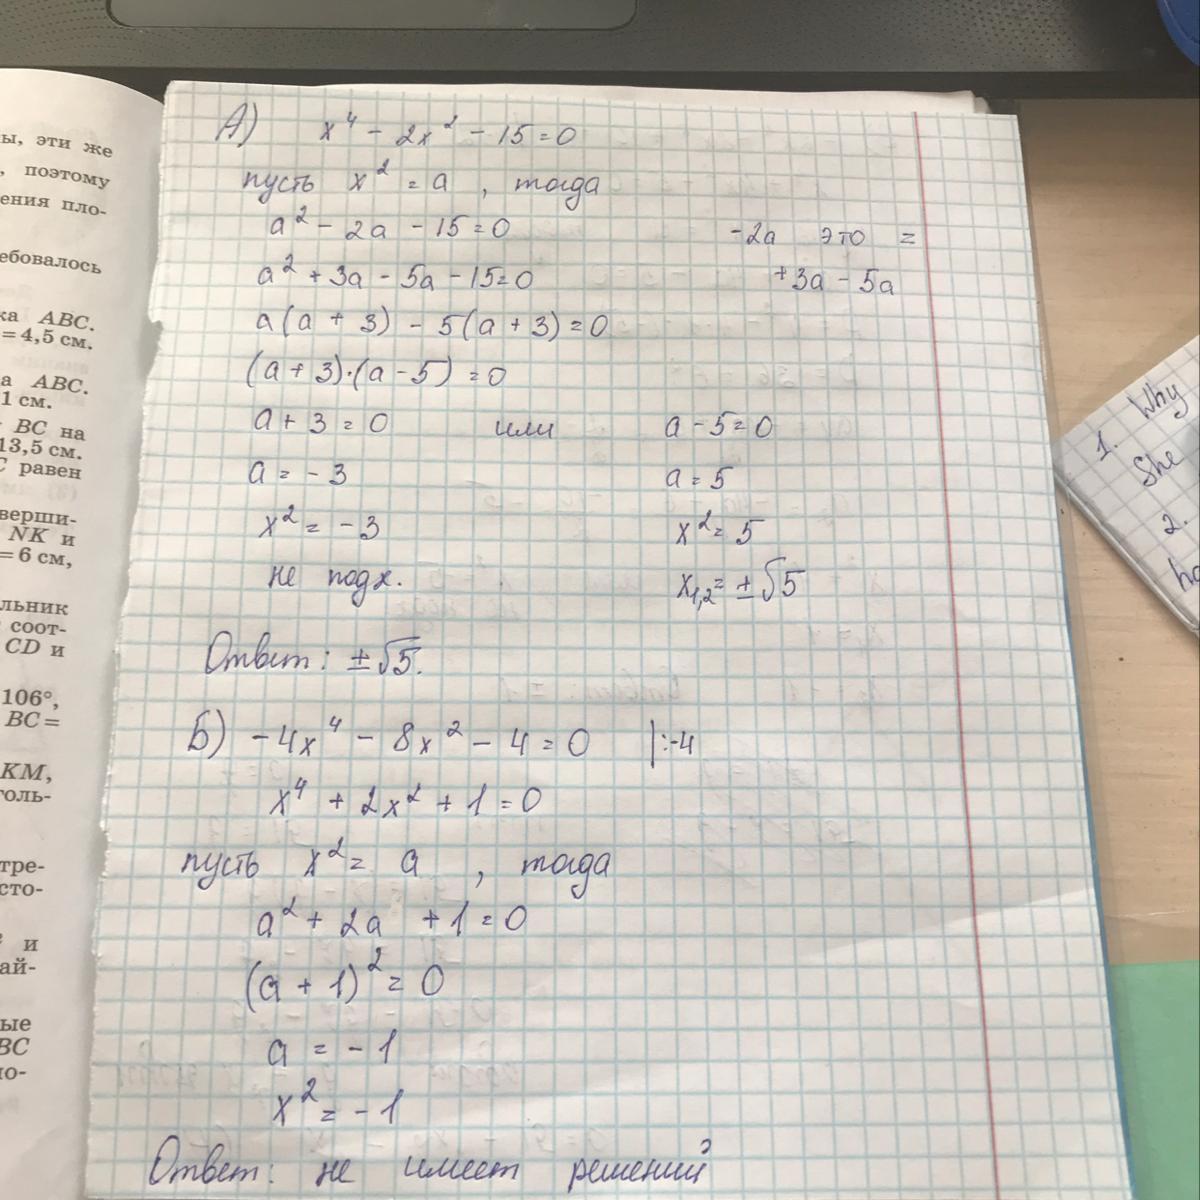 ы, эти же
, поэтому
ения пло-
ебовалось
ка ABC.
= 4,5 см.
а ABC.
1 см.
BC на
13,5 см.
C равен
верши-
NK и
= 6 см,
льник
соот-
CD и
106°,
BC =
KM,
толь-
тре-
сто-
и
ай-
ые
BC
по-
А) x⁴ - 2x² - 15 = 0
пусть x² = a , тогда
a² - 2a - 15 = 0 -2a это =
a² + 3a - 5a - 15 = 0 +3a - 5a
a(a + 3) - 5(a + 3) = 0
(a + 3)·(a - 5) = 0
a + 3 = 0 или a - 5 = 0
a = - 3 a = 5
x² = - 3 x² = 5
не подх. x₁,₂ = ±√5
Ответ: ±√5.
Б) -4x⁴ - 8x² - 4 = 0 |:-4
x⁴ + 2x² + 1 = 0
пусть x² = a , тогда
a² + 2a + 1 = 0
(a + 1)² = 0
a = - 1
x² = - 1
Ответ: не имеет решений
1. Why
She
2.